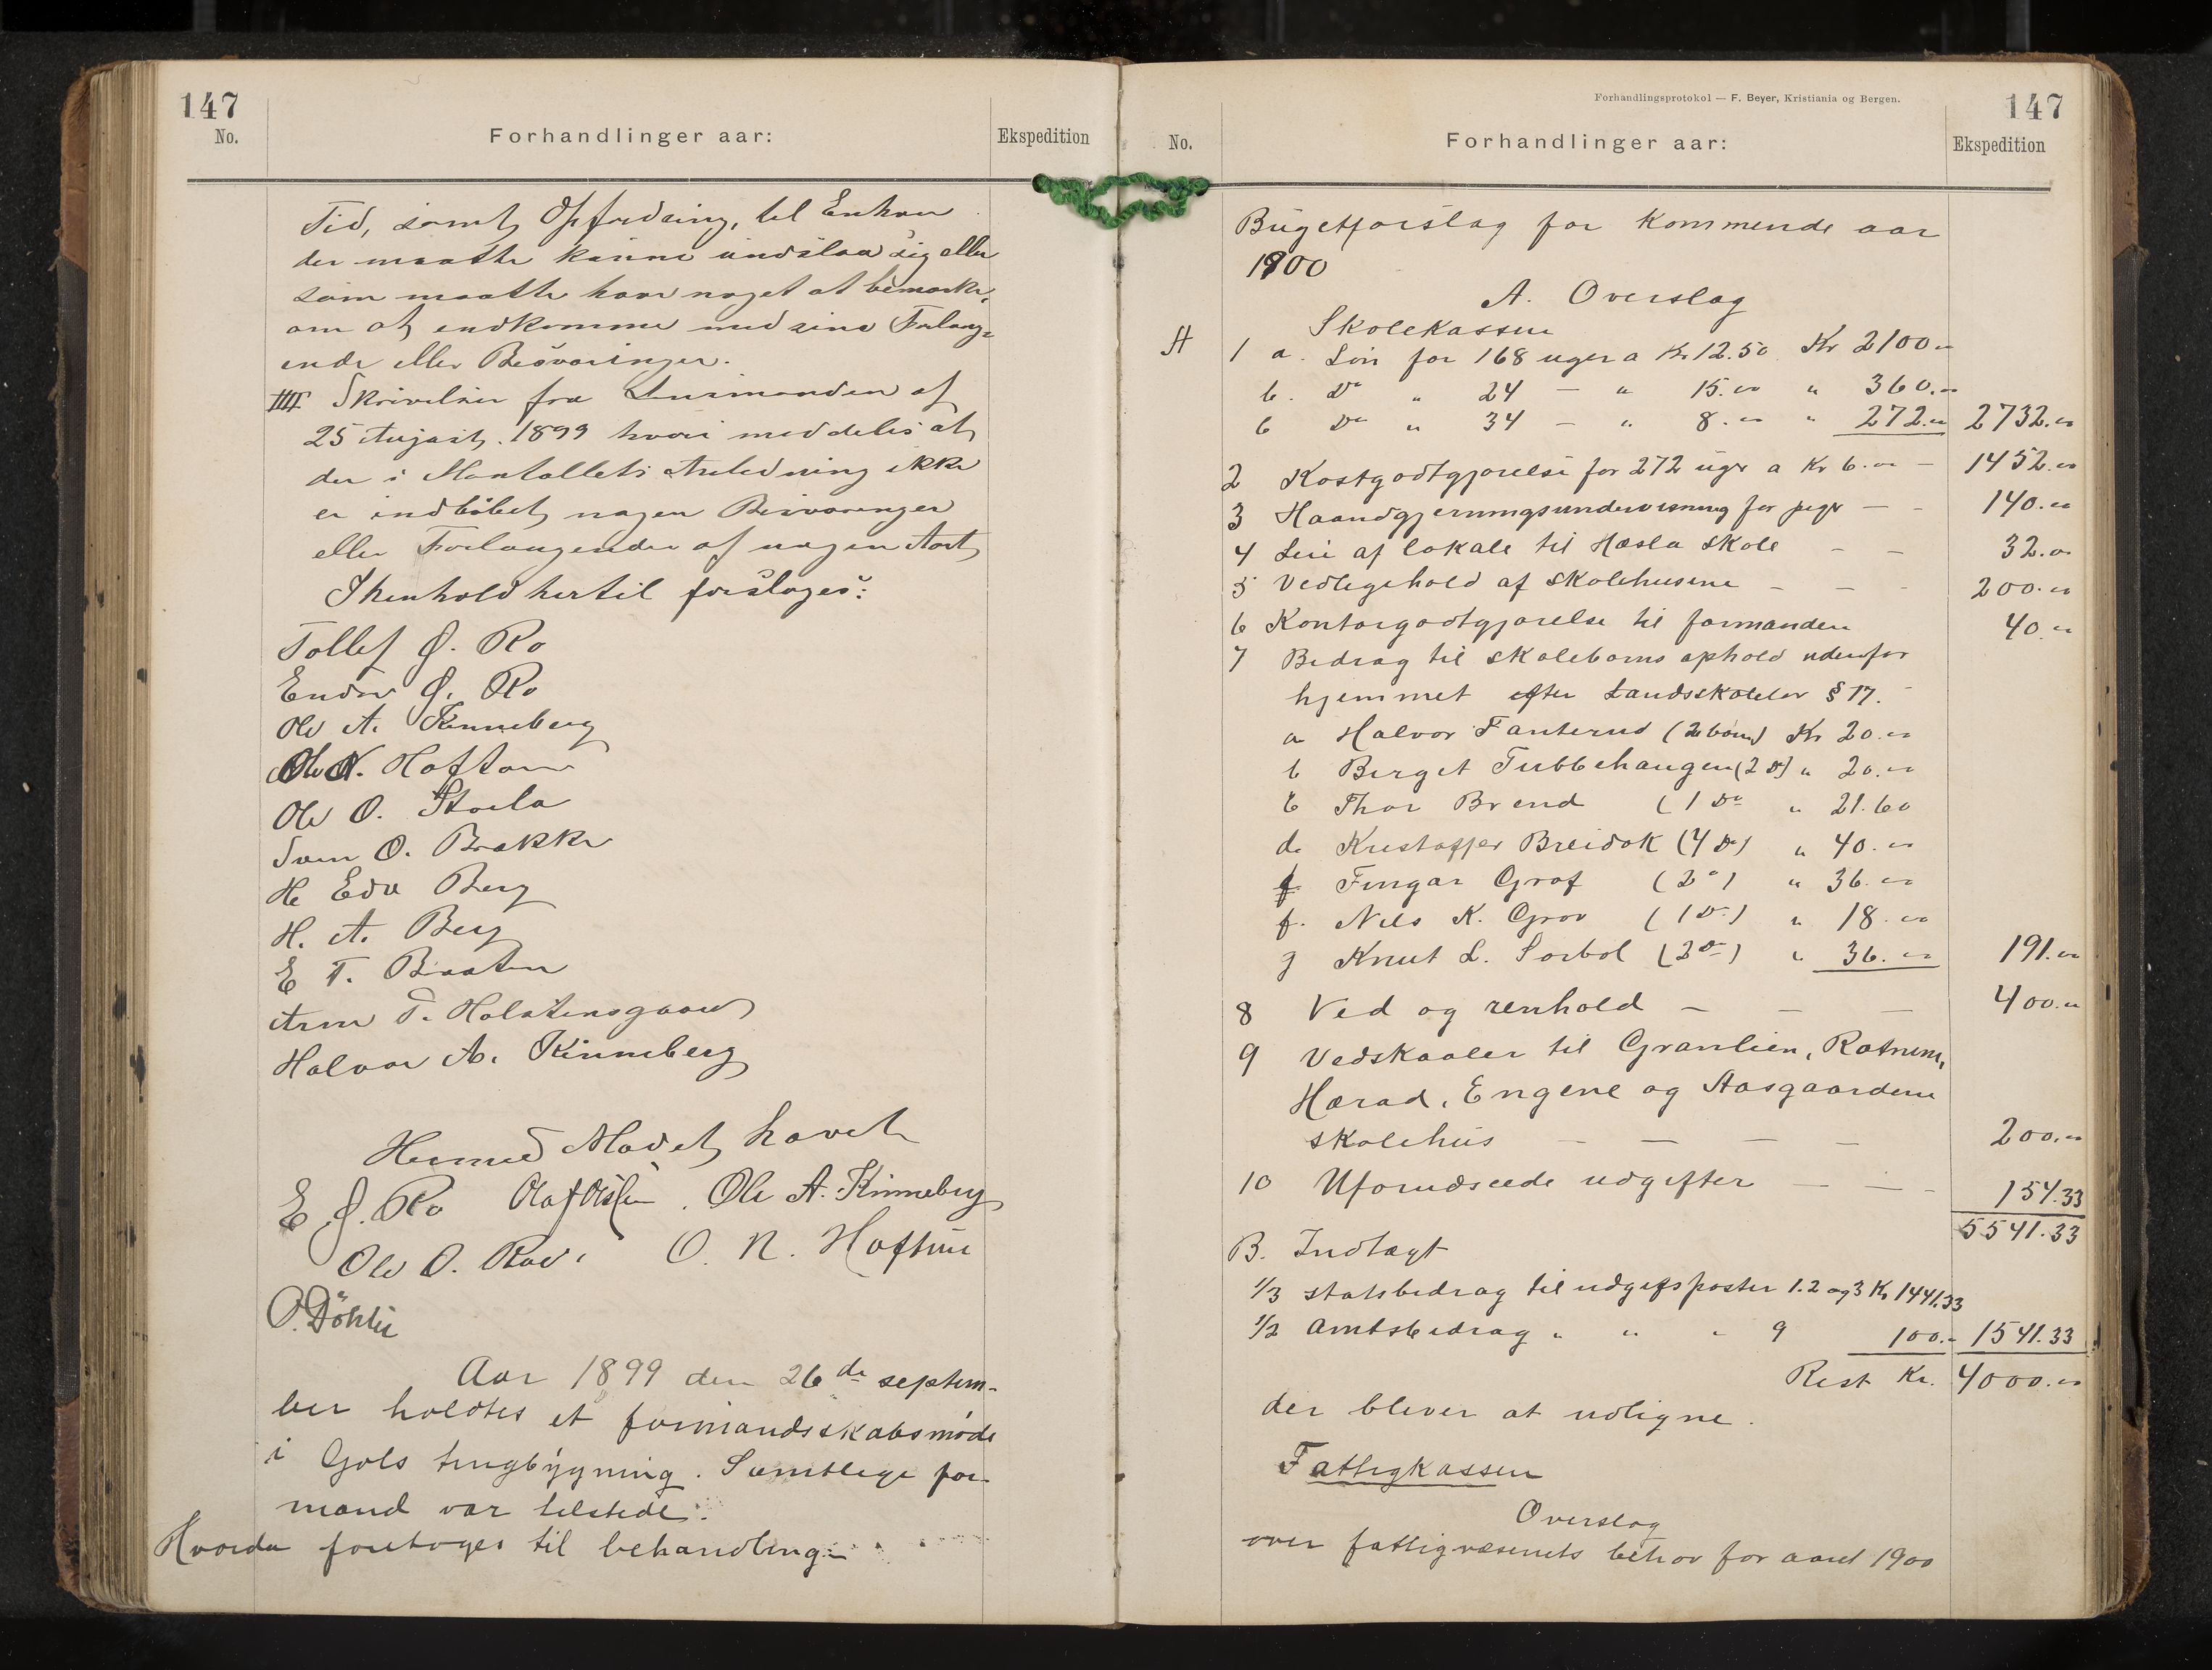 147
No.
Forhandlinger aar:
Ekspedition
Tid, samt Opfordring, til Enhver
der maatte kunne undslaa sig eller
som maatte have noget at bemærke,
om at indkomme med sine Forlang-
ende eller Besværinger.
IIII Skrivelser fra Lensmanden af
25 August 1899 hvori meddeles at
der i Mantallets Anledning ikke
er indløbet nogen Besværinger
eller Forlangender af nogen Art
I henhold hertil foreslages:
Tollef J. Ro
Endre J. Ro
Ole A. Kinneberg
Ole N. Haftom
Ole O. Storla
Sven O. Brakke
H Edv Berg
H. A. Berg
E T. Braaten
Arne T. Halstensgaard
Halvor A. Kinneberg
Hermed Mødet hævet
E. J. Ro Olaf Olsen. Ole A. Kinneberg
Ole O. Roe. O. N. Haftun
O. Döhlie
Aar 1899 den 26de septem-
ber holdtes et formandsskabsmøde
i Gols tingbygning. Samtlige for-
mænd var tilstede.
Hvorda foretoges til behandling:
Forhandlingsprotokol — F. Beyer, Kristiania og Bergen.
147
No.
Forhandlinger aar:
Ekspedition
Bugetforslag for kommende aar
1900
A. Overslag
Skolekassen
A 1 a. Løn for 168 uger a Kr 12.50 Kr 2100.-
b. Do " 24 — " 15.00 " 360.-
c Do " 34 — " 8.00 " 272.00 2732.00
2 Kostgodtgjørelse for 272 uger a Kr 6.00 — 1452.00
3 Haandgjerningsundervisning for piger — - 140.00
4 Leie af lokale til Hæsla skole — — 32.00
5 Vedligehold af skolehusene — — - 200.00
6 Kontorgodtgjørelse til formanden 40.00
7 Bidrag til skolebørns ophold udenfor
hjemmet efter Landsskolelov § 17.
a Halvor Fanterud (2 børn) Kr 20.00
b Birget Tubbehaugen (2 Do) " 20.00
c Thor Brend (1 Do " 21.60
d. Kristoffer Breidok (4 Do) " 40.00
f Fingar Grøf (2 ") " 36.00
f. Nils K. Grøv (1 Do) " 18.00
g Knut L. Sorbøl (2 Do) " 36.00 191.00
8 Ved og renhold — — — 400.00
9 Vedskaaler til Granlien, Rotneim,
Hærad, Engene og Aasgaardene
skolehus — — — — 200.00
10 Uforudseede udgifter — — - 154.33
5541.33
B. Indtægt
1/3 statsbidrag til udgiftsposter 1.2 og 3 Kr 1441.33
1/2 Amtsbidrag " " " 9 100.- 1541.33
Rest Kr. 4000.00
der bliver at udligne.
Fattigkassen
Overslag
over fattigvæsenets behov for aaret 1900